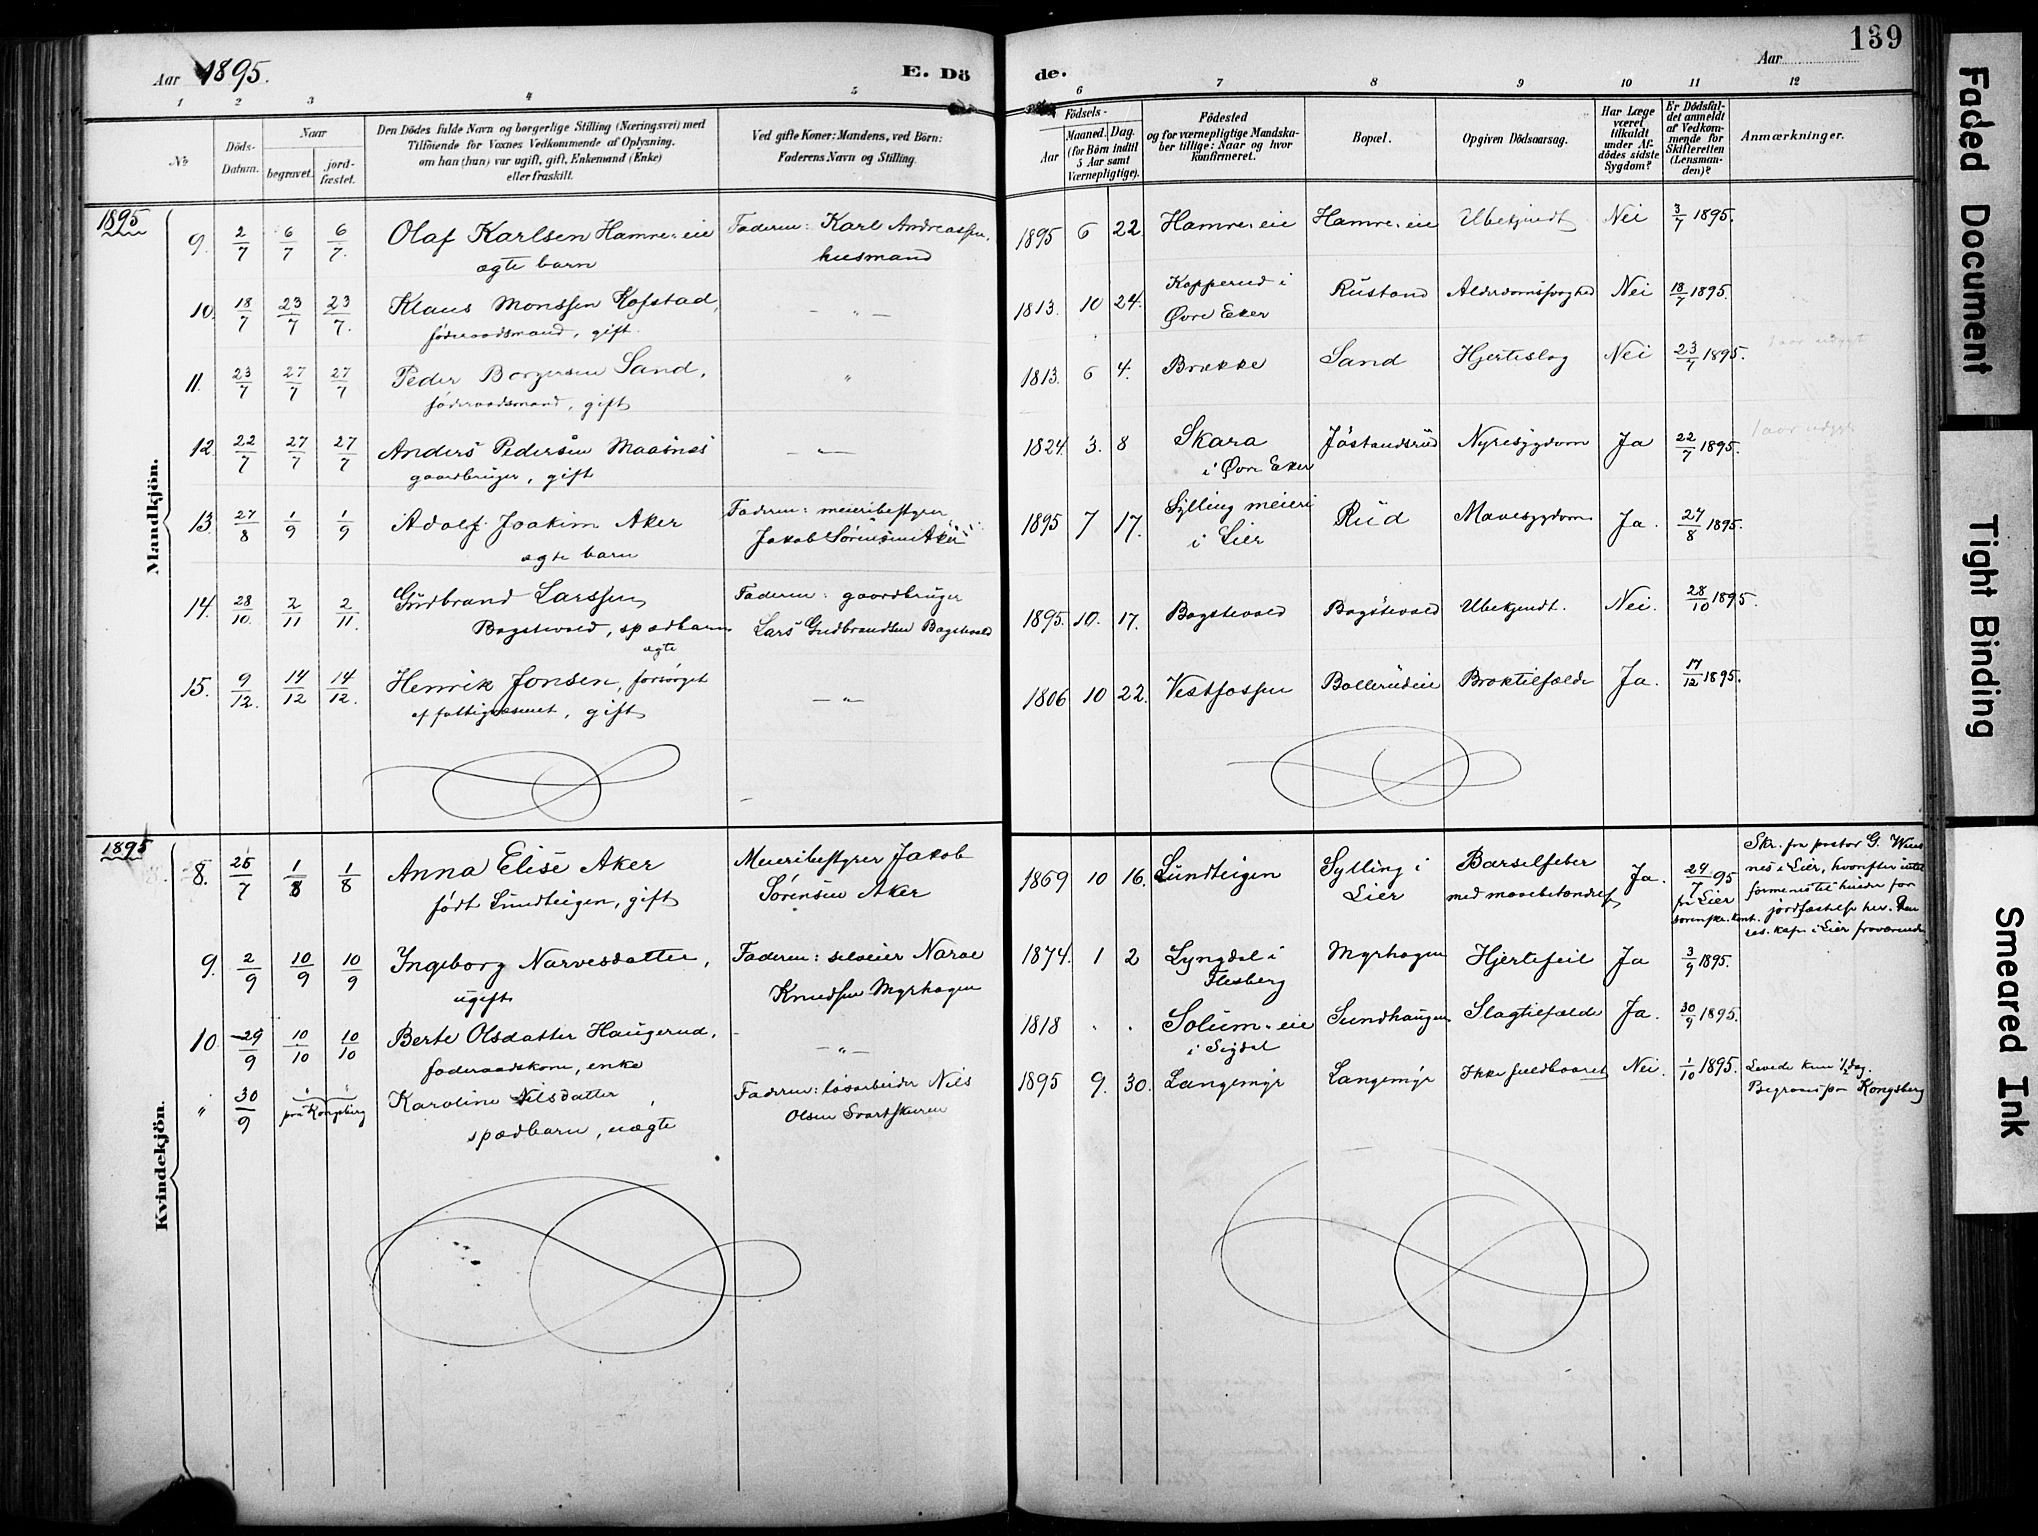 Aar 1895. E. Dö
de. Aar 139
1 2 3 4 5
6 7 8 9 10 11 12
No
Döds-Datum.
Naar
begravet.
jord-fæstet.
Den Dödes fulde Navn og borgerlige Stilling (Næringsvei) med
Tilföiende for Voxnes Vedkommende af Oplysning,
om han (hun) var ugift, gift, Enkemand (Enke)
eller fraskilt.
Ved gifte Koner: Mandens, ved Börn:
Faderens Navn og Stilling.
Födsels-
Aar
Maaned. Dag.
(for Börn indtil
5 Aar samt
Værnepligtige).
Födested
og for værnepligtige Mandska-
ber tillige: Naar og hvor
konfirmeret.
Bopæl.
Opgiven Dödsaarsag.
Har Læge
været
tilkaldt
under Af-
dödes sidste
Sygdom?
Er Dödsfal-
det anmeldt
af Vedkom-
mende for
Skifteretten
(Lensman-
den)?
Anmærkninger.
1895
Mandkjön.
9. 2/7 6/7 6/7. Olaf Karlsen Hamre-eie Faderen: Karl Andreassen, 1895 6 22 Hamre-eie Hamre-eie Ubekjendt Nei 3/7 1895.
ægte barn husmand
10. 18/7 23/7 23/7. Klaus Monssen Kofstad, — " — 1813. 10 24. Kopperud i Rustand Alderdomssvaghed Nei 18/7 1895.
föderaadsmand, gift. Øvre Eker
11. 23/7 27/7 27/7 Peder Borgersen Sand, " 1813. 6 4. Brække Sand Hjerteslag Nei 23/7 1895.
föderaadsmand, gift
12. 22/7 27/7 27/7 Anders Pedersen Maasnes — " — 1824. 3. 8 Skara Jöstandsrud Nyresygdom Ja 22/7 1895.
gaardbruger, gift i Øvre Eker
13. 27/8 1/9 1/9 Adolf Joakim Aker Faderen: meieribestyrer 1895 7 17. Sylling meieri Rud Mavesygdom Ja. 27/8 1895.
ægte barn Jakob Sörensen Aker i Lier
14. 28/10. 2/11 2/11. Gudbrand Larssen Faderen: gaardbruger 1895. 10. 17. Bagstevold Bagstevold Ubekjendt. Nei. 28/10 1895.
Bagstevold, spædbarn Lars Gudbrandsen Bagstevold
ægte
15. 9/12. 14/12 14/12. Henrik Jonsen, forsörget — " — 1806 10 22. Vestfossen Bollerudeie Broktilfælde Ja. 17/12 1895.
af fattigvæsenet, gift
1895
Kvindekjön.
8. 25/7 1/8 1/8 Anna Elise Aker Meieribestyrer Jakob 1869 10 16. Lundteigen Sylling i Barselfeber Ja. 24/7 95
födt Lundteigen, gift Sörensen Aker Lier med mavebetændelse fr Lier
sorenskr. kont.
Skr. fra pastor G.
nes i Lier, hvorefter intet
formenes til hinder for
jordfæstelse her. Den
res. kap. i Lier fraværende
9. 2/9 10/9 10/9 Ingeborg Narvesdatter, Faderen: selveier Narve 1874. 1 2 Lyngdal i Myrhagen Hjertefeil Ja 3/9 1895.
ugift Knudsen Myrhagen Flesberg
10 29/9 10/10 10/10 Berte Olsdatter Haugerud, — " — 1818 . . Solum-eie Sundhaugen Slagtilfælde Ja. 30/9 1895.
föderaadskone, enke i Sigdal
" 30/9 paa Kongsberg Karoline Nilsdatter, Faderen: lösarbeider Nils 1895 9. 30. Langemyr Langemyr Ikke fuldbaaret Nei. 1/10 1895. Levede kun 1/2 dag.
spædbarn, uægte Olsen Svartskuren Begraves paa Kongsberg
Faded Document
Tight Binding
Smeared Ink